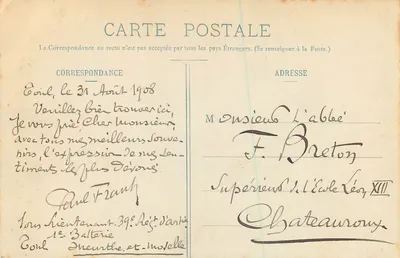 CARTE POSTALE
La Correspondance au recto n'est pas acceptée par tous les pays Étrangers. (Se renseigner à la Poste.)
CORRESPONDANCE
Toul, le 31 Août 1908
Veuillez bien trouver ici,
Je vous prie, Cher Monsieur,
avec tous mes meilleurs souve-
nirs, l'expression de mes sen-
timents les plus dévoués
Paul Frantz
Sous Lieutenant. 39e Régt d'Artie
1e Batterie
Toul Meurthe-et-Moselle
ADRESSE
Monsieur l'abbé
F. Breton
Supérieur de l'École Léon XIII
Chateauroux